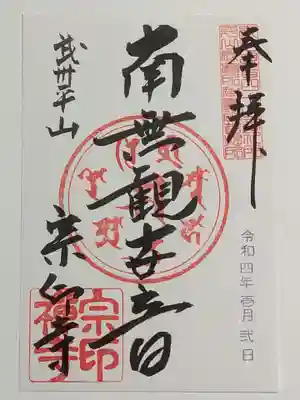 奉拝
令和四年壱月弐日
南無観世音
武州平山
宗印寺
宗印
禅寺